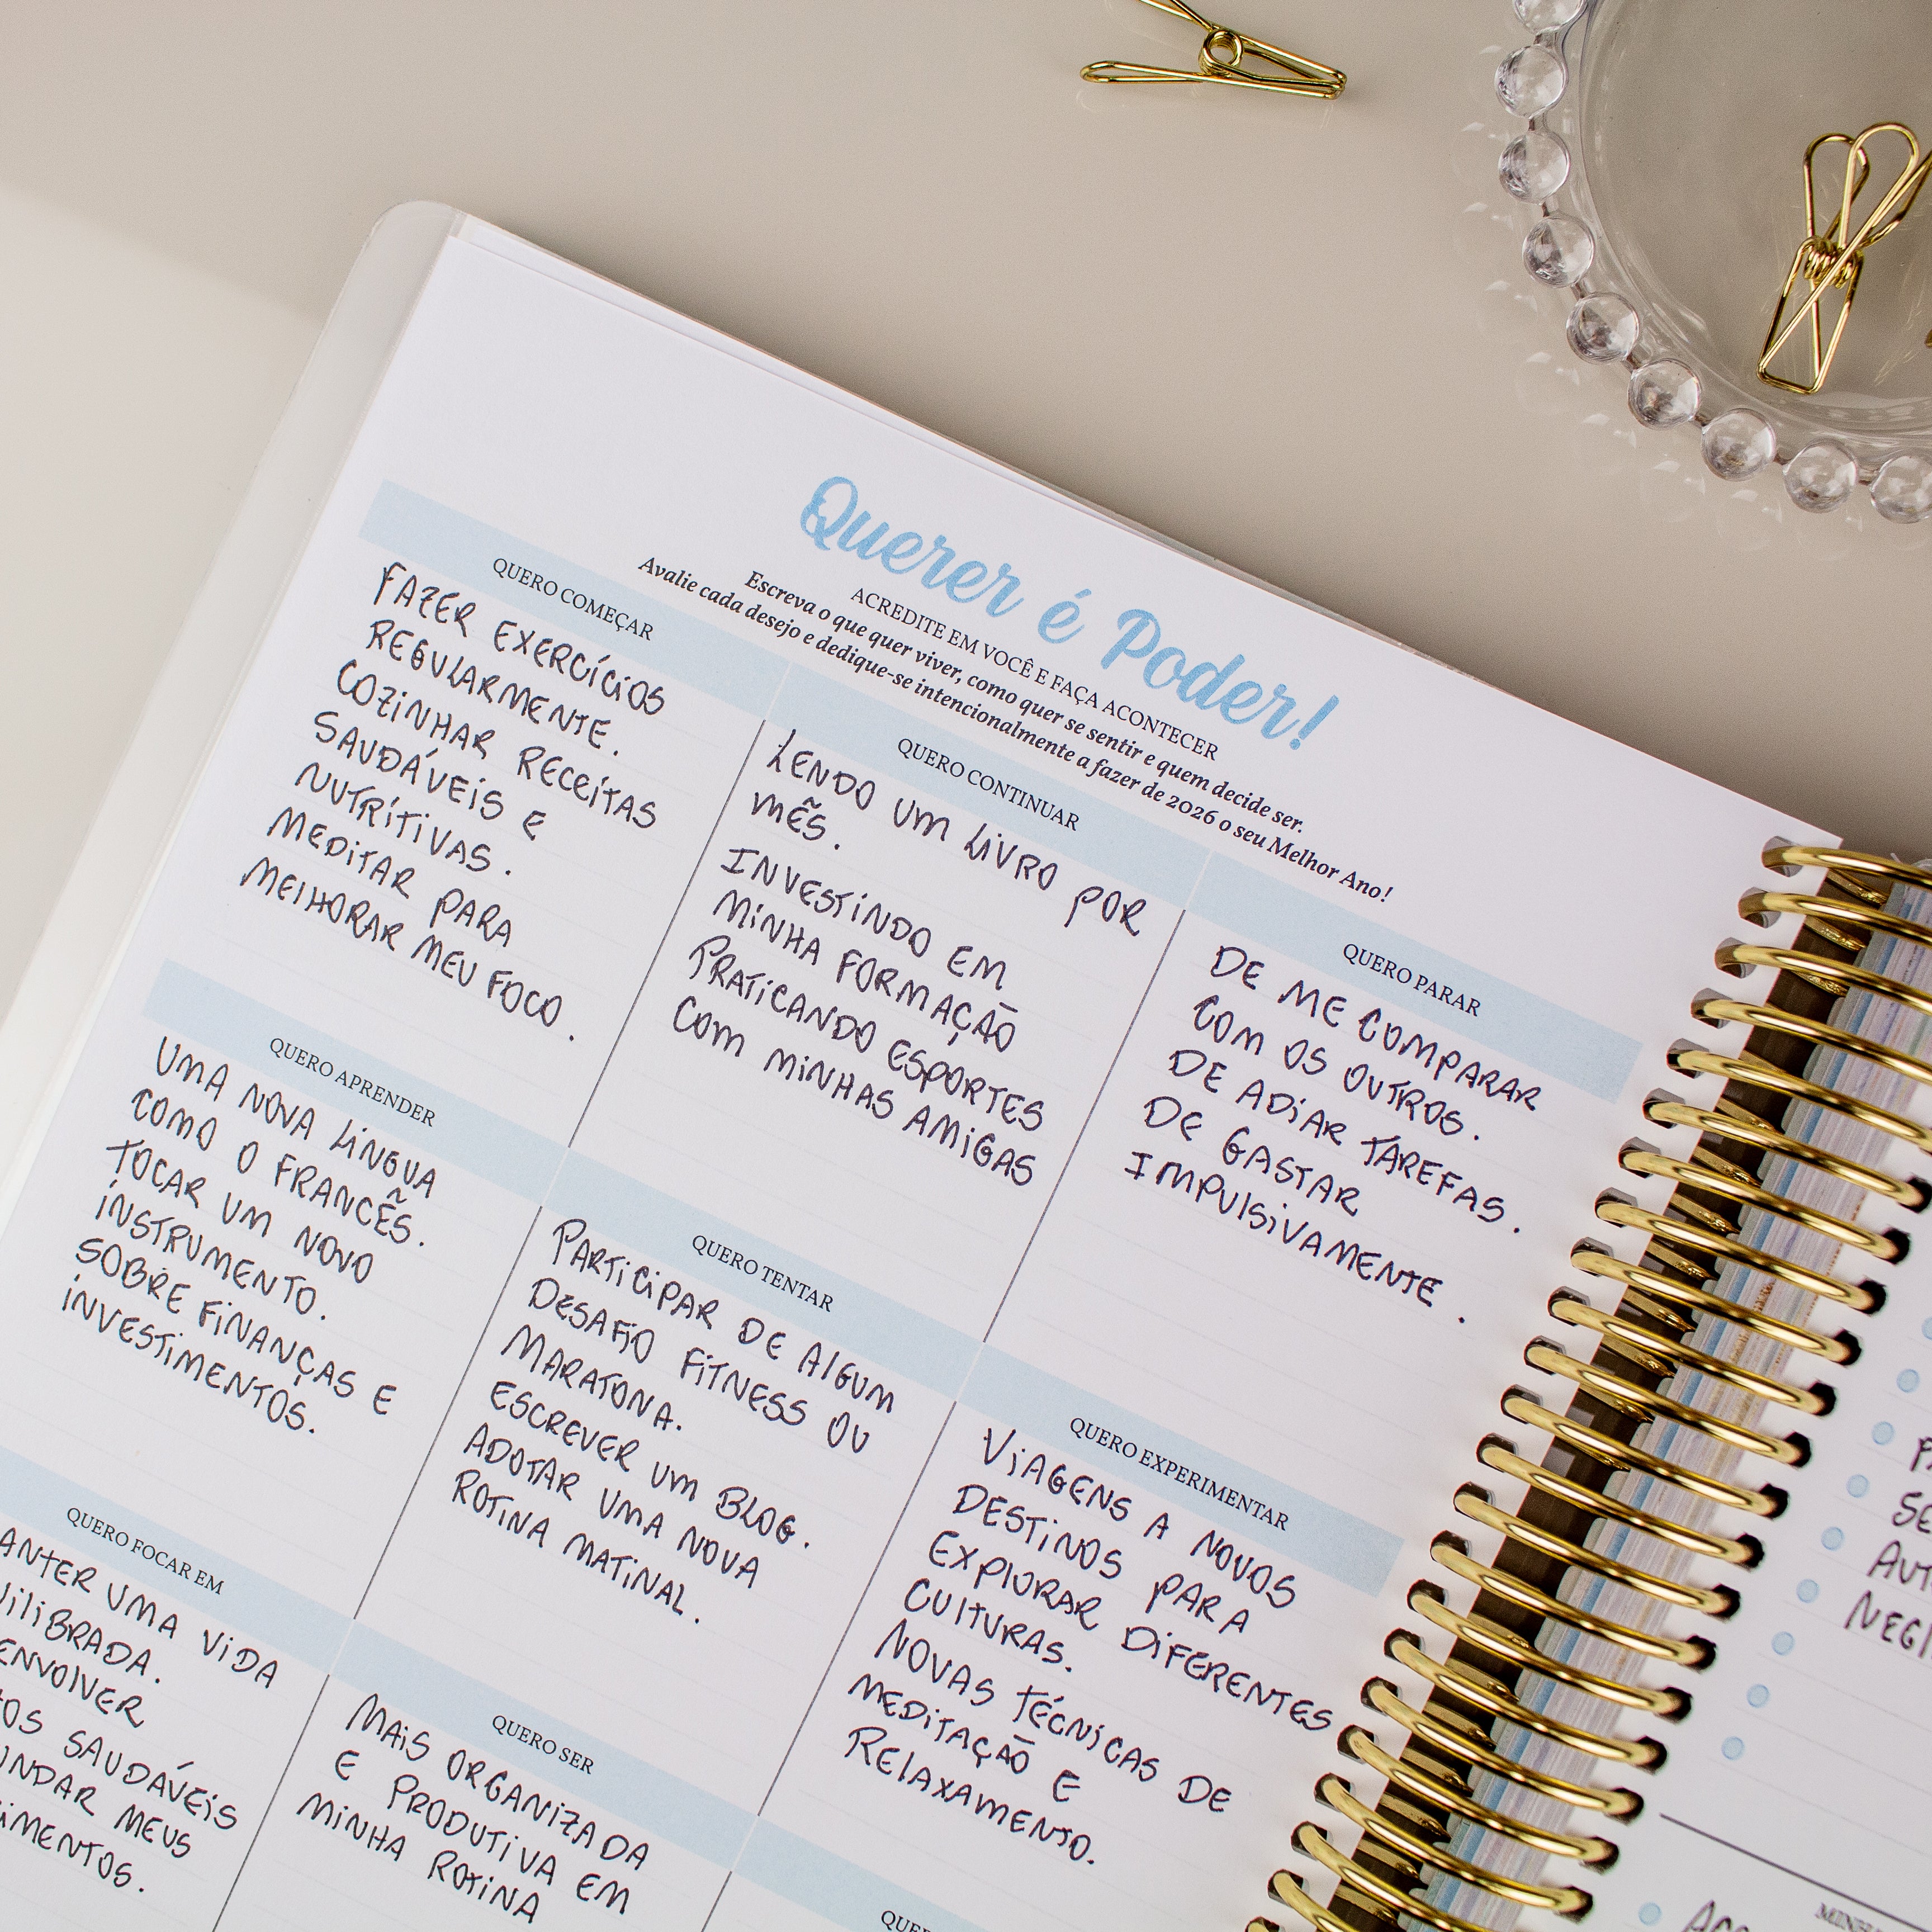 Querer é Poder!
ACREDITE EM VOCÊ E FAÇA ACONTECER
Escreva o que quer viver, como quer se sentir e quem decide ser.
Avalie cada desejo e dedique-se intencionalmente a fazer de 2026 o seu Melhor Ano!
QUERO COMEÇAR
FAZER EXERCÍCIOS
REGULARMENTE.
COZINHAR RECEITAS
SAUDÁVEIS E
NUTRITIVAS.
MEDITAR PARA
MELHORAR MEU FOCO.
QUERO CONTINUAR
LENDO UM LIVRO POR
MÊS.
INVESTINDO EM
MINHA FORMAÇÃO
PRATICANDO ESPORTES
COM MINHAS AMIGAS
QUERO PARAR
DE ME COMPARAR
COM OS OUTROS.
DE ADIAR TAREFAS.
DE GASTAR
IMPULSIVAMENTE.
QUERO APRENDER
UMA NOVA LÍNGUA
COMO O FRANCÊS.
TOCAR UM NOVO
INSTRUMENTO.
SOBRE FINANÇAS E
INVESTIMENTOS.
QUERO TENTAR
PARTICIPAR DE ALGUM
DESAFIO FITNESS OU
MARATONA.
ESCREVER UM BLOG.
ADOTAR UMA NOVA
ROTINA MATINAL.
QUERO EXPERIMENTAR
VIAGENS A NOVOS
DESTINOS PARA
EXPLORAR DIFERENTES
CULTURAS.
NOVAS TÉCNICAS DE
MEDITAÇÃO E
RELAXAMENTO.
QUERO FOCAR EM
ANTER UMA VIDA
ILIBRADA.
ENVOLVER
OS SAUDÁVEIS
UNDAR MEUS
IMENTOS.
QUERO SER
MAIS ORGANIZADA
E PRODUTIVA EM
MINHA ROTINA
QUER
SE
AUT
NEGI